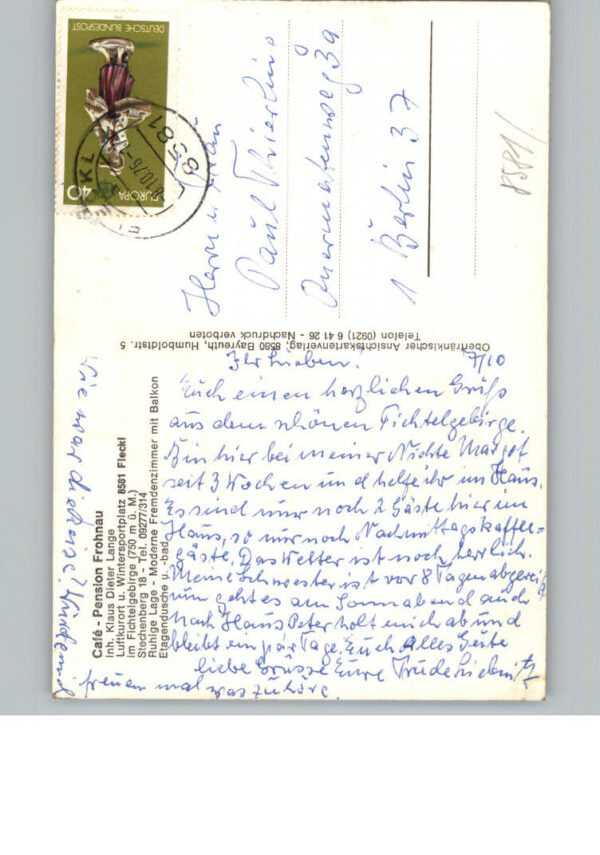 DEUTSCHE BUNDESPOST
EUROPA
40
8581
Herrn u. Frau
Paul Thierling
1 Berlin 37
8581/
Oberfränkischer Ansichtskartenverlag, 8580 Bayreuth, Humboldtstr. 5
Telefon (0921) 6 41 26 - Nachdruck verboten
Café - Pension Frohnau
Inh. Klaus Dieter Lange
Luftkurort u. Wintersportplatz 8581 Fleckl
im Fichtelgebirge (750 m ü. M.)
Stechenberg 18 - Tel. 09277/314
Ruhige Lage - Moderne Fremdenzimmer mit Balkon
Etagendusche u. -bad
Ihr Lieben! 7/10
Euch einen herzlichen Gruß
aus dem schönen Fichtelgebirge.
Bin hier bei meiner Nichte Margot
seit 3 Wochen und helfe ihr im Haus.
Es sind nur noch 2 Gäste hier im
Haus, so nur noch Nachmittagskaffee=
gäste. Das Wetter ist noch herrlich.
Meine Schwester ist vor 8 Tagen abgereist
nun geht es am Sonnabend auch
nach Haus Peter holt mich ab und
bleibt ein pär Tage. Euch Alles Gute
liebe Grüsse Eure Trude
Wie war die Reise? Würde mich
freuen mal was zu höre.